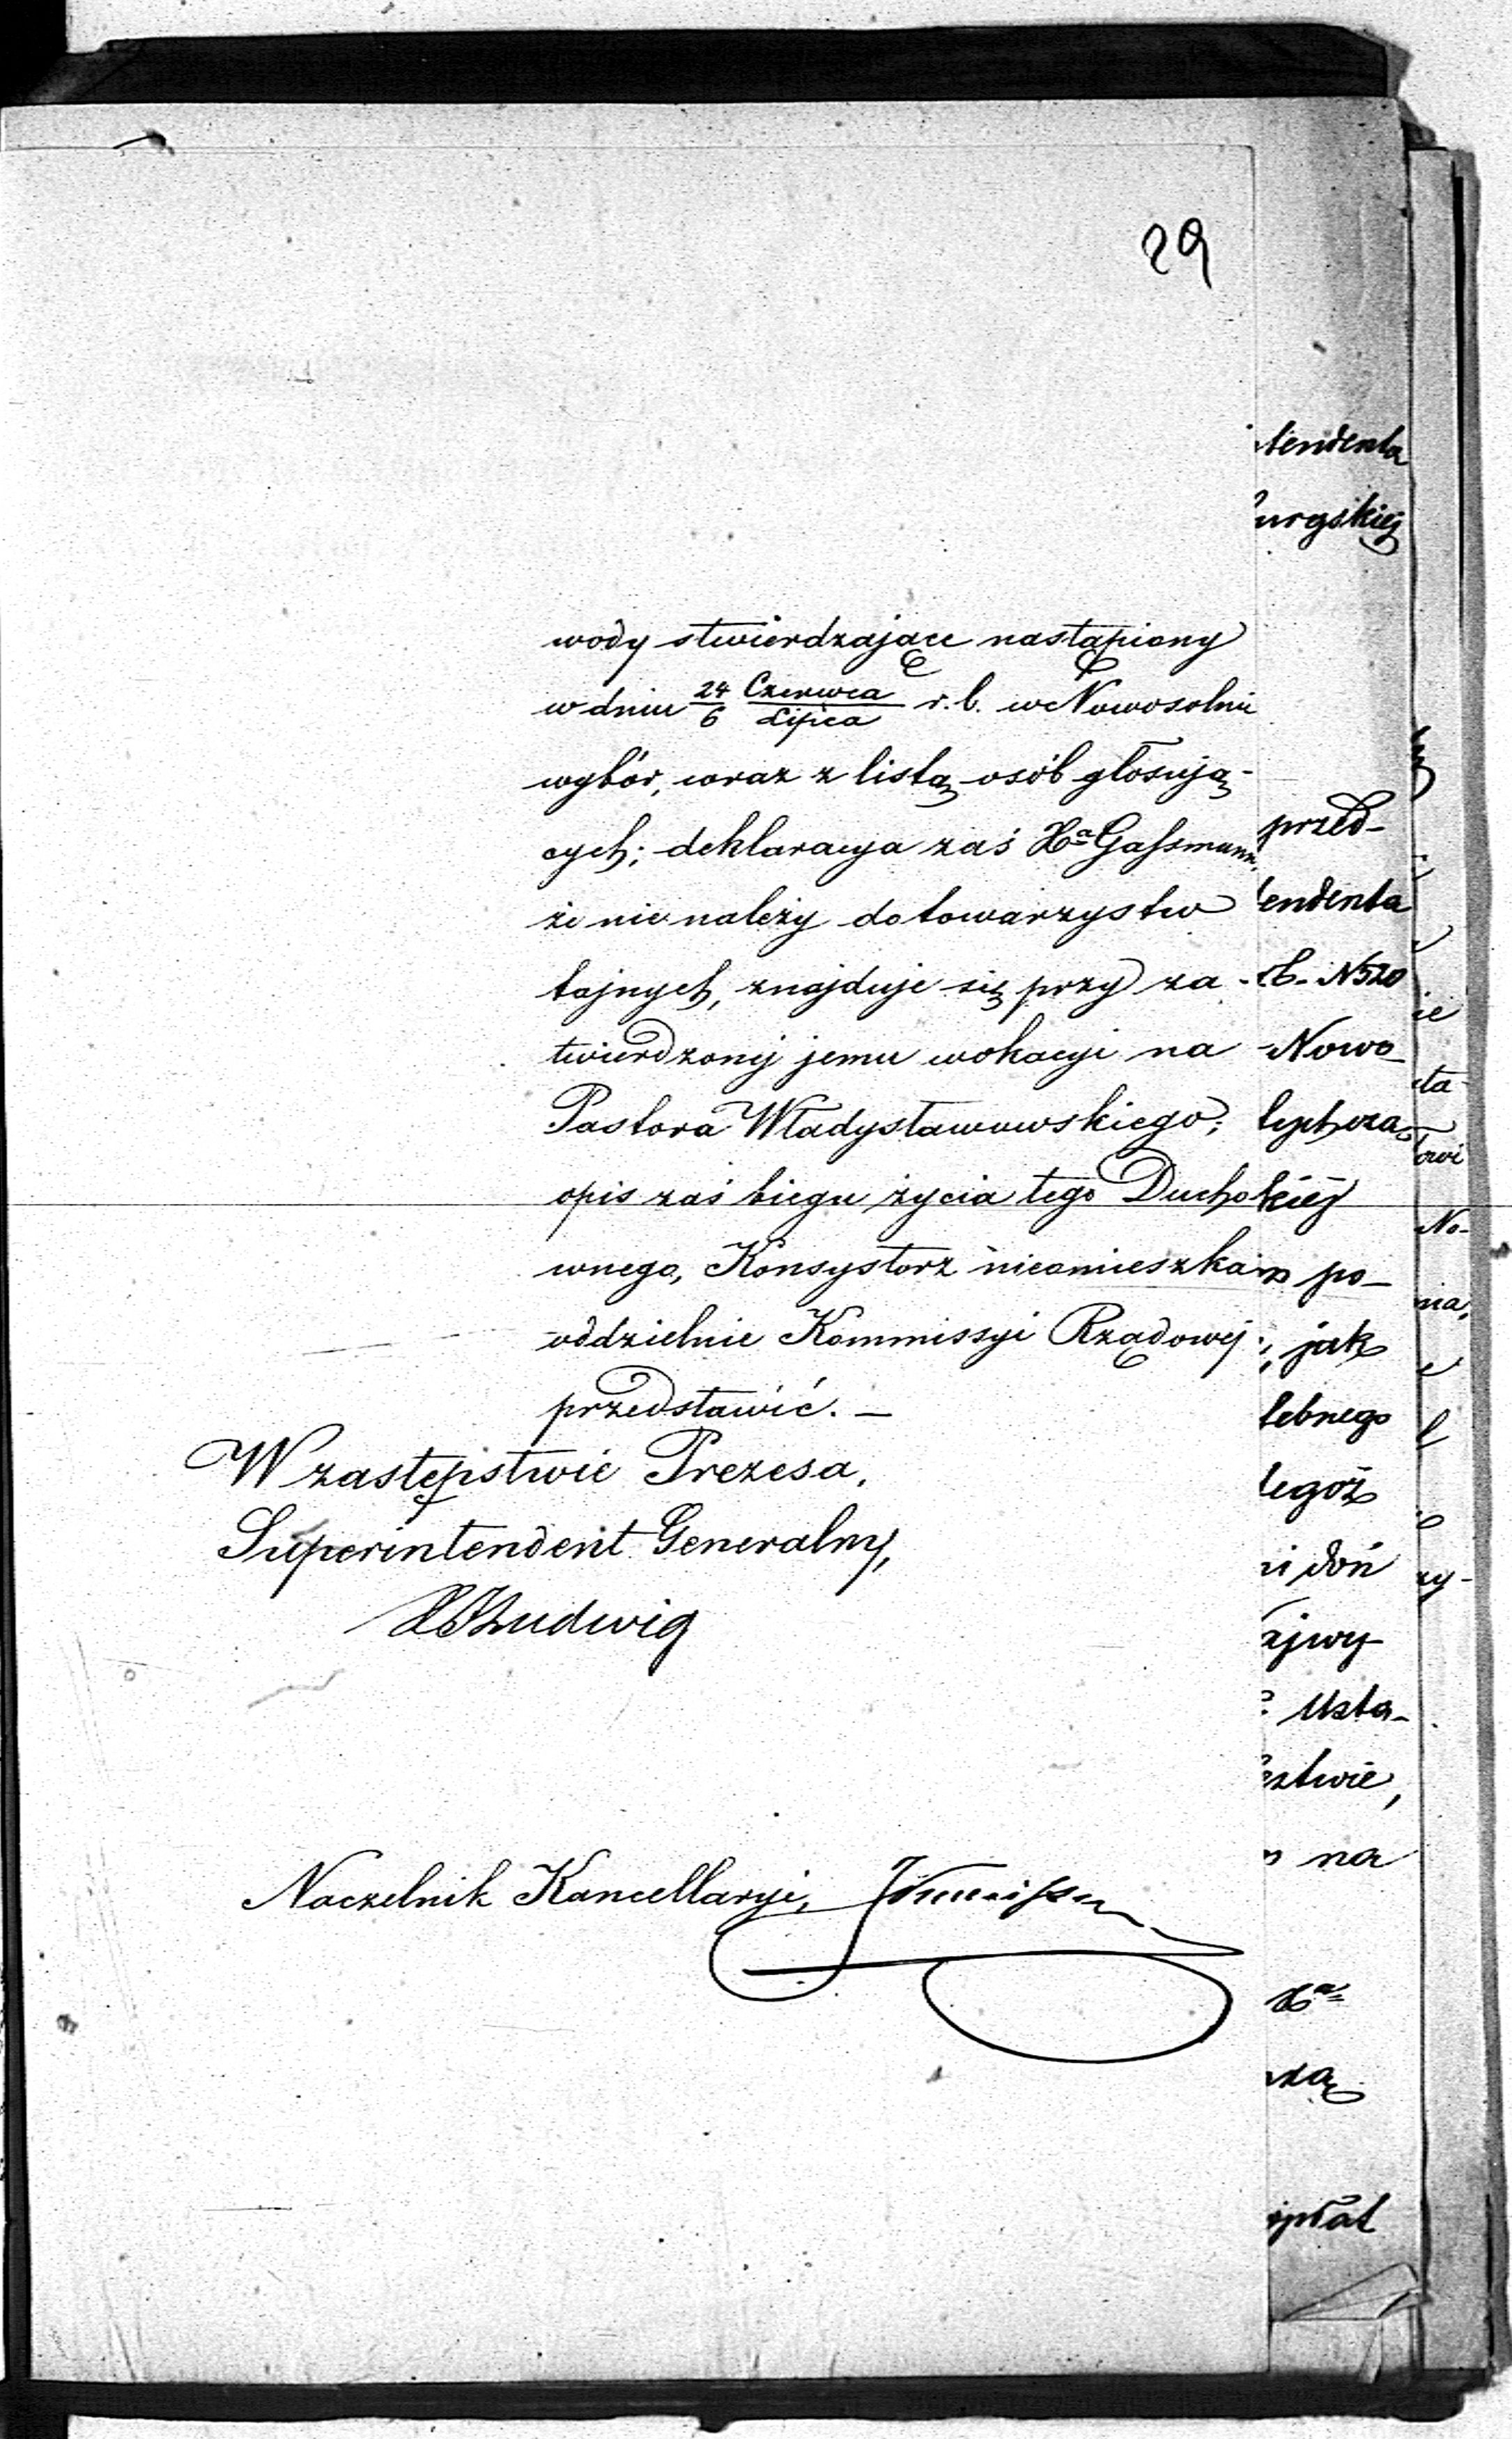 29
wody stwierdzające nastąpiony
w dniu 24/6 Czerwca/Lipca r. b. we Nowosolnie
wybór, wraz z listą osób głosują-
cych; deklaracya zaś Xa Gassmann,
że nie należy do towarzystw
tajnych, znajduje się przy za-
twierdzonej jemu wokacyi na
Pastora Władysławowskiego;
opis zaś biegu życia tego Ducho
wnego, Konsystorz nieomieszka
oddzielnie Kommissyi Rządowej
przedstawić. –
W zastępstwie Prezesa,
Superintendent Generalny,
Ludwig
Naczelnik Kancellaryi,
tendenta
urgskiej
przed-
tendenta
b. N 520
Nowo-
kiej
po-
jak
tegoż
doń
Usta-
na
Xa